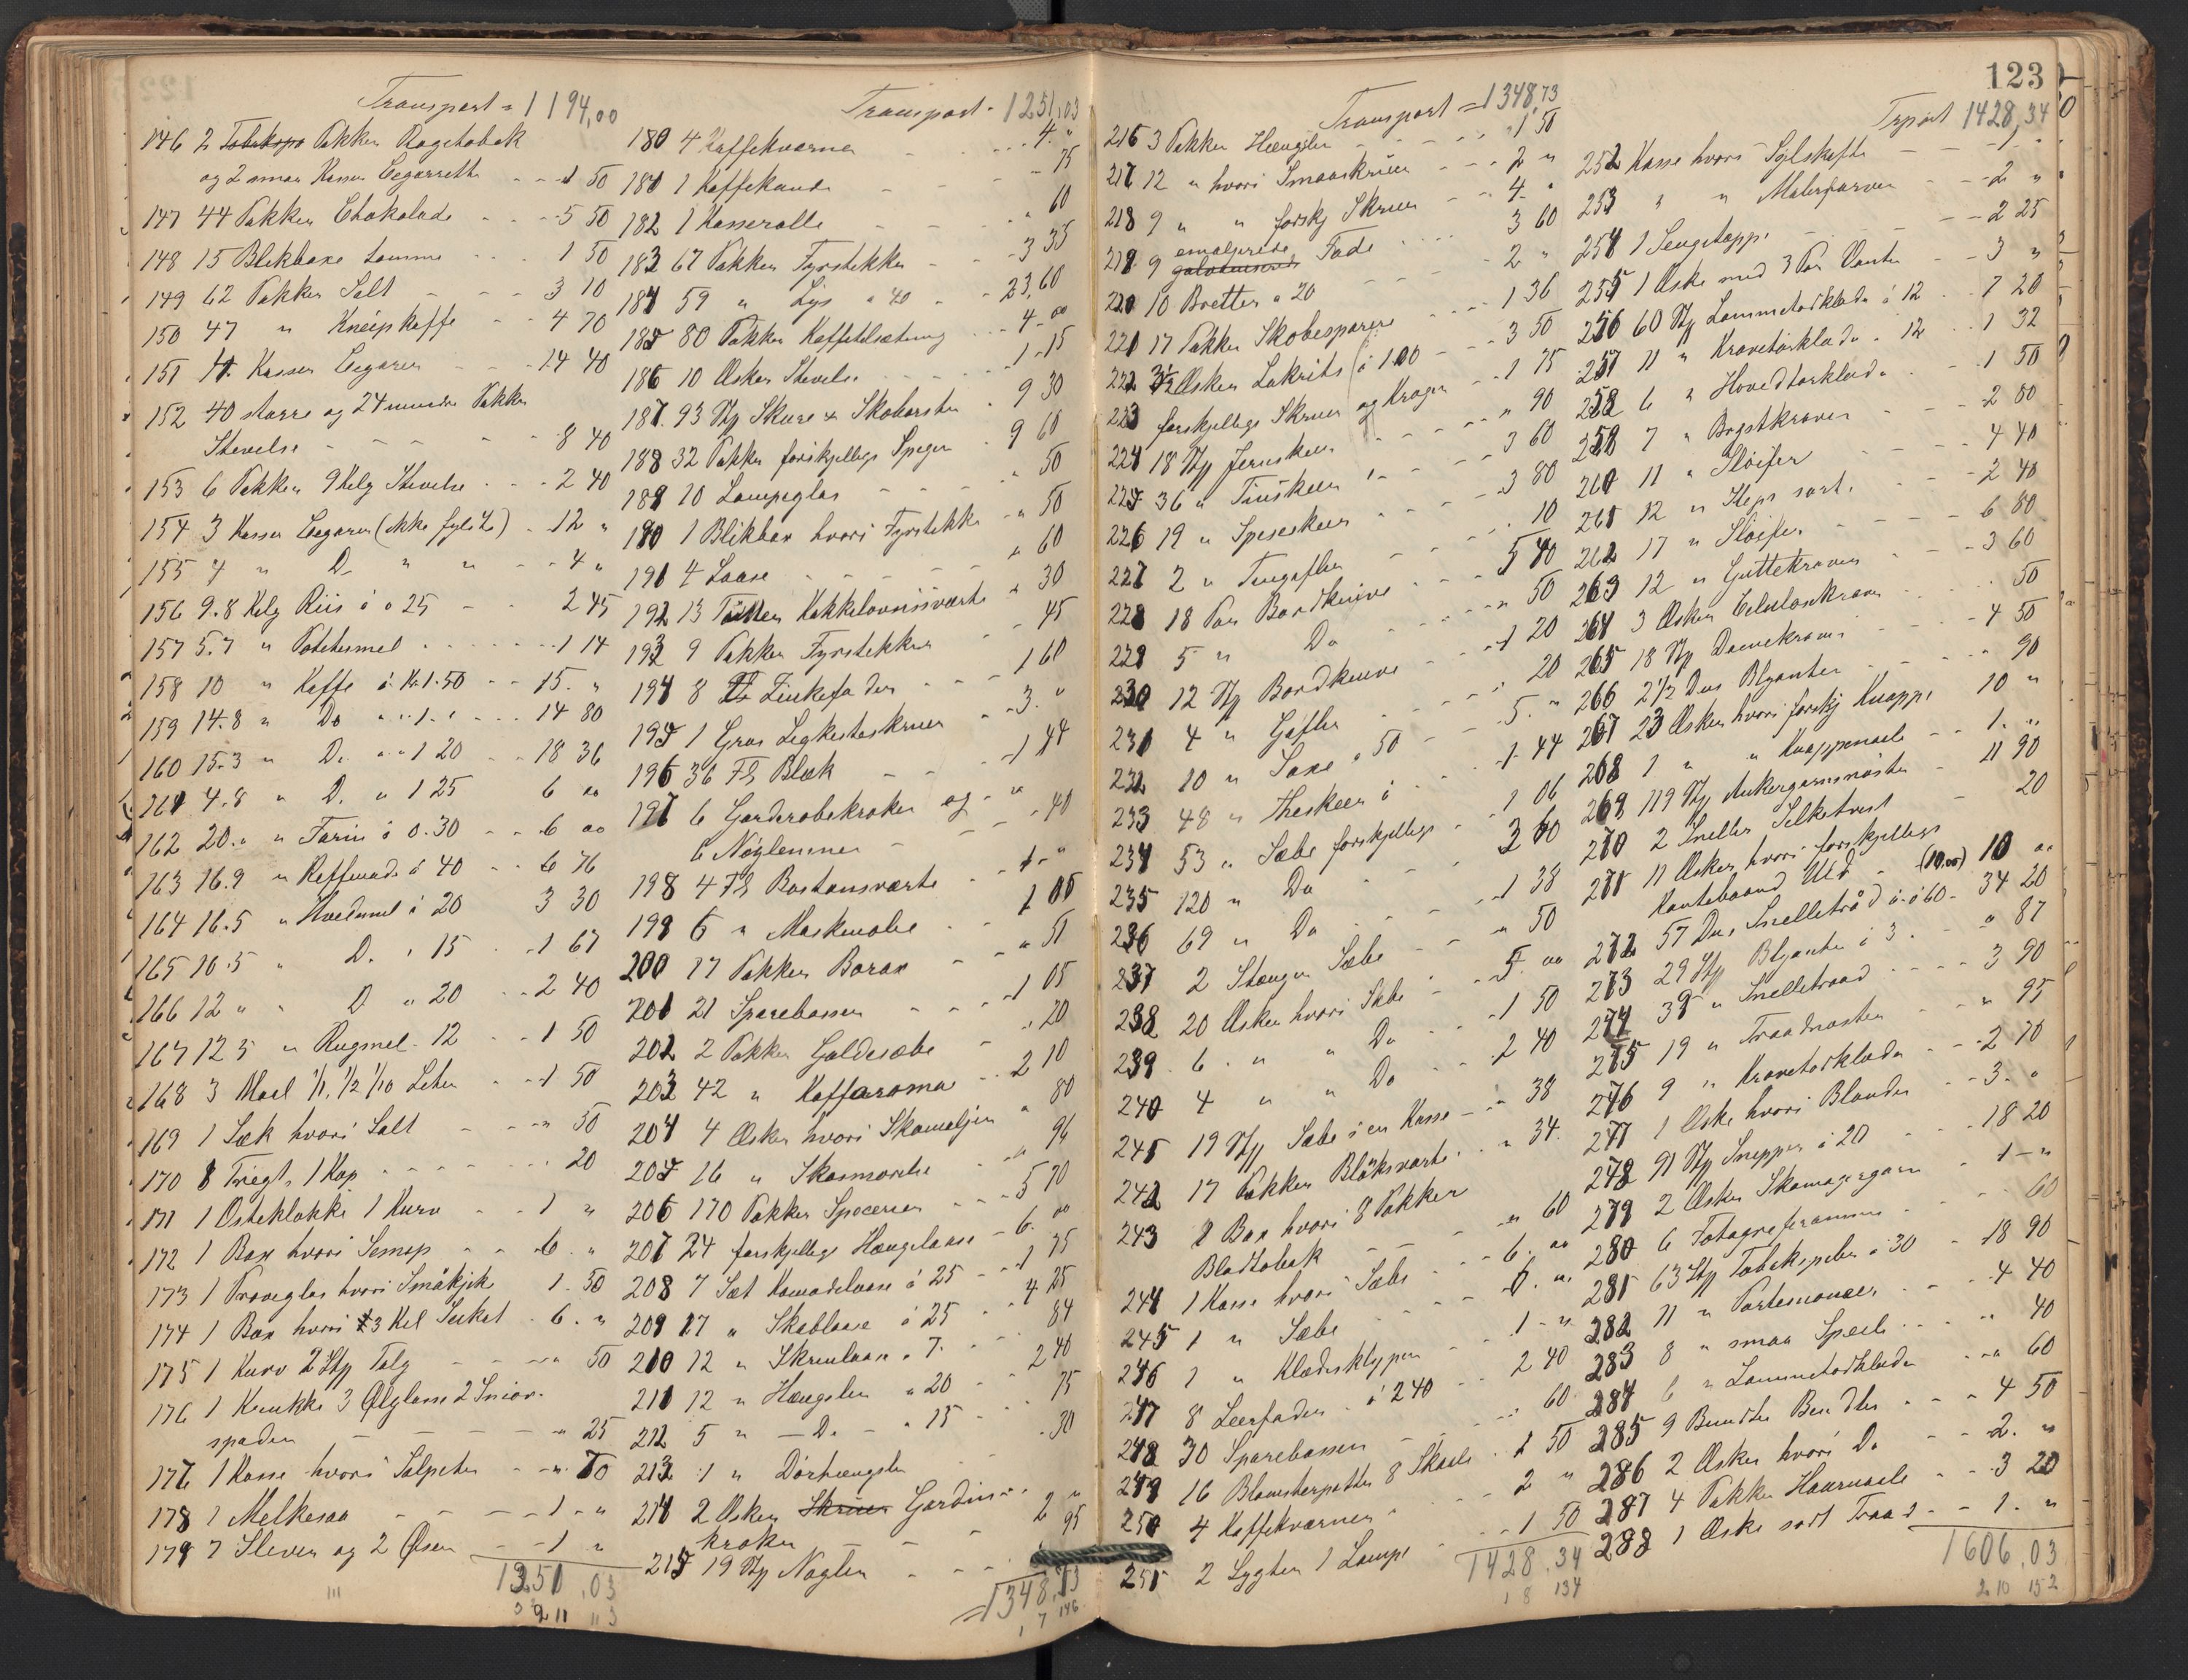 123
Transport = 1194,00
146 2 Pakker Røgetobak
og 2 smaa Kasser Cegarretter - - 1 50
147 44 Pakker Chokolade - - 5 50
148 15 Blikboxe tomme - - 1 50
149 62 Pakker Salt - - 3 10
150 47 " Kneipkaffe - - 4 70
151 Kasser Cegarer - - 14 40
152 40 større og 24 mindre Pakker
Stivelse - - 8 40
153 6 Pakker 9 Kelg Stivelse - - 2 40
154 3 Kasser Cegarer (ikke fyldte) - 12 "
155 4 " D. " " - - 4 "
156 9.8 Kelg Riis á 25 - - 2 45
157 5.7 " Potetesmel - - 1 14
158 10 " Kaffe á Kr 1.50 - - 15. "
159 14.8 " Do " 1. " - - 14 80
160 15.3 " D. " 1 20 - - 18 36
161 4.8 " D. " 1 25 6 00
162 20. " " Farin á 0.30 - - 6 00
163 16.9 " Raffenade á 40 - - 6 76
164 16.5 " Hvedemel á 20 3 30
165 D. " 15 - 1 67
166 12 " " D " 20 - - 2 40
167 12 5 " Rugmel - 12 - - 1 50
168 3 Maal 1/1, 1/2 1/10 Leter - - 1 50
169 1 Sæk hvori Salt - - " 50
170 Tregt, 1 Kop - - 20
171 1 Osteklokke 1 Kurv - - 1 "
172 1 Box hvori Senep - - 6. "
173 1 Prøveglas hvori Småkjik 1. 50
174 1 Box hvori 3 Kel Sukat - 6. "
175 1 Kurv 2 Stp Talg - - " 50
176 1 Krukke 3 Ølglass 2 Smør-
spader - - " 25
177 1 Kasse hvori Salpeter - - "
178 1 Melkesaa - - 1 - "
179 7 Slever og 2 Øser - - 1 "
,03
Transport - 1251,03
180 4 Kaffekværner - - 4. "
181 1 Kaffekande - - 75
182 1 Kasserolle - - " 60
183 67 Pakker Fyrstikker - - 3 35
184 59 " Lys " 40 - - 23,60
185 80 Pakker Kaffetilsætning - - 4 - 00
186 10 Æsker Stivelse - - 1 - 15
187. 93 Stp Skure & Skobørster - 9 30
188 32 Pakker forskjellige Speger - 9 60
189 10 Lampeglas - - " 50
190 1 Blikbox hvori Fyrstikker - " 50
191 4 Laase - - " 60
192 13 Kakkelovnssværte " 30
193 9 Pakker Fyrstikker - - 45
194 8 Zinkefader - - 1 60
195 1 Gros Ligkisteskruer - - 3. "
196 36 Fl Blæk - - 1 44
197 6 Garderobekroker og - "
6 Nøglemmer - - 40
198 4 Fl Bostonsværte - - 1 - "
199 6 " Maskinolie - -
200 17 Pakker Borax - - " 51
201 21 Sparebøsser - - 1 05
202 2 Pakker Galdesæbe - - " 20
203 42 " Kaffaroma - - 2 10
204 4 Æsker hvori Skomaljer " 80
205 16 " Skosmørelse - - " 96
206 170 Pakker Specerier - - 5 70
207 24 forskjellige Hængelaase - 6. 00
208 7 Sæt Komodelaase á 25 - - 1 75
209 17 " Skablaase á 25 - - 4 25
210 12 " Skrinlaase " 7. - - 84
211 12 " Hængsler " 20 - - 2 40
212 5 " - D. - " 15 - - 75
213 1 " Dörhængsler - - 30
214 2 Æsker Skruer Gardin- - - 2 "
kroker
215 19 Stp Nøgler - - 95
= 1348,73
Transport = 1348,73
216 3 Pakker Hængsler - - " 1 50
217 12 " hvori Smaaskruer - - 2 "
218 9 " " forskj Skruer - - 4. "
219 9 galvaniserede emaljerede Fade - - 3 60
220 10 Bretter " 20 - - 2 "
221 17 Pakker Skobesparere - - 1 36
222 3½ Æsker Lakrits á 100 - - 3 50
223 forskjellige Skruer og Kroger - - 1 75
224 18 Stp Jernskeer - - " 90
225 36 " Tinskeer - - 3 60
226 19 " Speseskeer - - 3 80
227 2 " Tengafler - - 10
228 18 Par Bordknive - - 5 40
229 5 " Do - - " 50
230 12 Stp Bordknive - - 1 20
231 4 " Gafler - - " 20
232 10 " Saxe " 50 - - 5. "
233 48 " Theskeer á - - 1 44
234 53 " Sæbe forskjellige - - 1 06
235 120 " Do - -
236 69 " Do - - 1 38
237 2 Stænger Sæbe - - " 50
238 20 Æsker hvori Sæbe - - 5. 00
239 6. " " Do - - 1 50
240 4 " " Do - - 2 40
241 19 Stp Sæbe i en Kasse - - " 38
242 17 Pakker Bløksværte - - " 34
243 1 Box hvori 8 Pakker
Bladtobak - - " 60
244 1 Kasse hvori Sæbe - - 6. 00
245 1 " Sæbe - - 6. "
246 1 " Klædesklyper - - 1 - "
247 8 Leerfader - á 2 40 - - 2 40
248 30 Sparebøsser - - " 60
249 16 Blomsterpotter 8 Skaale - 1 50
250 4 Kaffekværner - - 2 "
251 2 Lygter 1 Lampe - - 1 50
1428.34
Trport 1428,34
252 Kasse hvori Sylskafter - - 1. "
253 " " Malerfarver - - 2 "
254 1 Sengetæppe - - 2 25
255 1 Æske med 3 Par Vanter - - 3 "
256 60 Stp Lommetørklæder á 12 - - 7 20
257 11 " Kravetörklæder " 12 - - 1 32
258 6 " Hovedtørklæder - - 1 50
259 7 " Brystkraver - - 2 80
260 11 " Sløifer - - 4 40
261 12 " Slips sort. - - 2 40
262 17 " Sløifer - - 6 80
263 12 " Guttekraver - - 3 60
264 3 Æsker Celuloskraver - - 50
265 18 Stp Damekraver - - 4 50
266 2½ Dus Blyanter - - " 90
267 23 Æsker hvori forskj Knapper 10 "
268 1 " " Knappenaale - - 1. "
269 119 Stp Ankergarnsnøster - 11 90
270 2 Sneller Silketvist - 20
271 11 Æsker hvori forskjellige
Kantebaand Uld - (10.00) 10 00
272 57 Dus Snelletråd á 60 - 34 20
273 29 Stp Blyanter á 3. - " 87
274 39 " Snelletraad - - 3 90
275 19 " Traadnøster - - " 95
276 9 " Kravetørklæder - - 2 70
277 1 Æske hvori Blonder - - 3. "
278 91 Stp Snipper á 20 - - 18 20
279 2 Æsker Skomagergarn - 1 - "
280 6 Fotografirammer - - 60
281 63 Stp Tobakspiber á 30 - 18 90
282 11 " Portemonæer - - 4 40
283 8 " smaa Speile - - " 40
284 6 " Lommetørklæder - - " 60
285 9 Bundter Bændler - - 4 50
286 2 Æsker hvori Do - - 2. "
287 4 Pakker Haarnaale - - 3 20
288 1 Æske sort Traad - - 1. "
1606.03